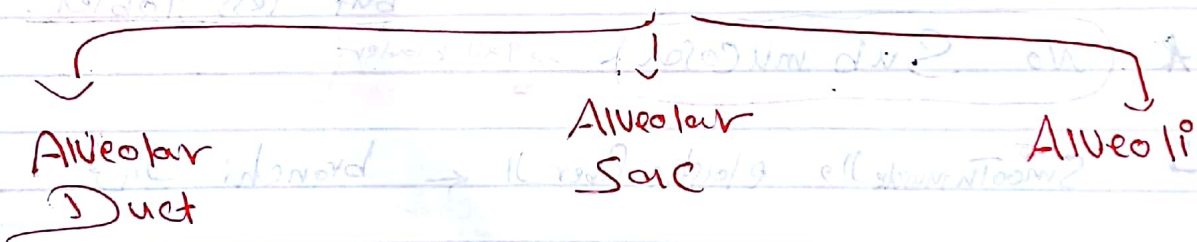 Alveolar
Duct
Alveolar
Sac
Alveoli